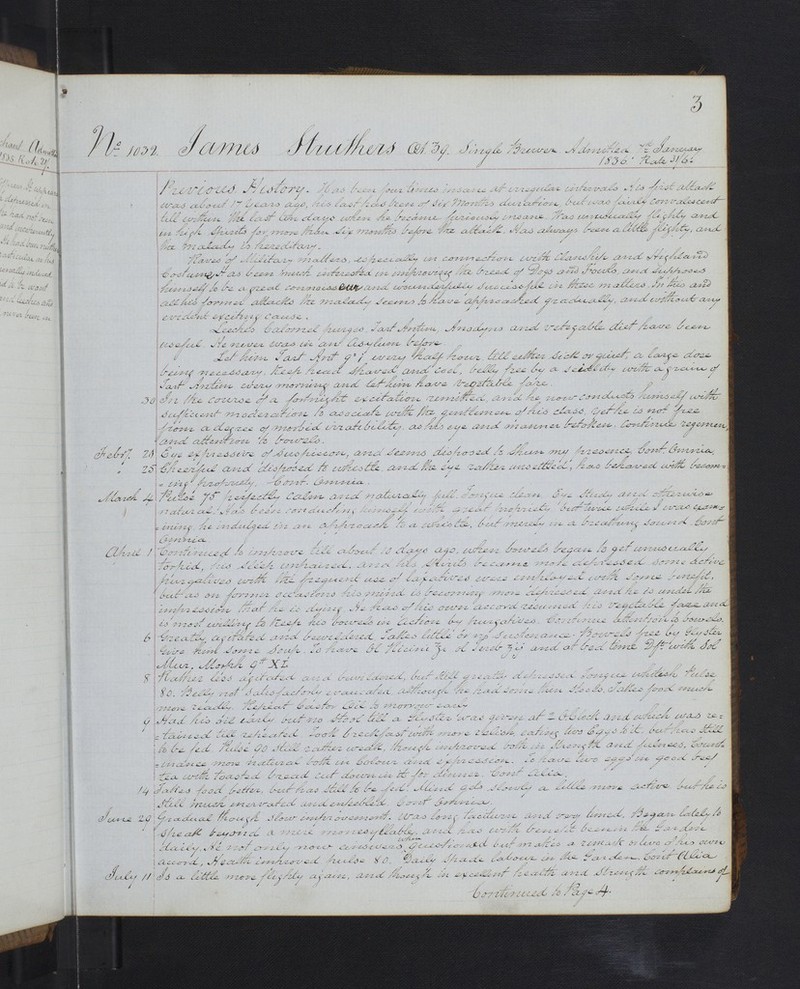 3
No. 1032. James Struthers Aet 39. Single Brewer Admitted 7th January
1836. Rate 31/6
Previous History. Has been four times insane at irregular intervals His first attack
was about 17 Years ago, his last has been of six Months duration, but was fairly convalescent
till within the last ten days when he became furiously insane. Was unusually flighty and
in high Spirits for more than six months before the attack. Has always been a little flighty, and
the malady is hereditary.
Raves of Military matters, especially in connection with Clanship and Highland
Costume, Has been much interested in improving the breed of Dogs and Fowls, and supposes
himself to be a great connoisseur and wounderfully Successful in these matters. In this and
all his former attacks the malady seems to have approached gradually, and without any
evident exciting cause.
Leeches. Calomel purges, Tart Antim, Anodyns and vetegable diet have been
useful. He never was in an Asylum before.
Let him Tart Ant gr 1 every half hour till either sick or quiet, a large dose
being necessary. Keep head Shaved and cool, belly free by a with a grain of
Tart Antim every morning and let him have Vegetable fare.
30 In the course of a fortnight excitation remitted, and he now conducts himself with
sufficient moderation to asociate with the gentlemen of his class, yet he is not free
from a degree of morbid irratibility, as his eye and manner betoken. Continue regimen,
and attention to bowels.
Febry. 20 Eye expressive of suspicion, and seems disposed to shun my presence. Cont. Omnia.
" 25 Cheerful and disposed to whistle and the Eye rather unsettled, has behaved with becom=
=ing propriety. Cont. Omnia.
March 4 Pulse 75 perfectly calm and naturally full. Tongue clean. Eye Study and otherwise
natural. Has been conducting himself with great propriety but twice while I was exam=
=ining he indulged in an approach to a whistle, but merely in a breathing sound Cont
Omnia
April 1 Continued to improve till about 10 days ago, when bowels began to get unusually
torpid, his sleep impaired, and his Spirits became more depressed some active
purgatives with the frequent use of laxatives were employed with some benefit.
but as on former occasions his mind is becoming more depressed and he is under the
impression that he is dying. He has of his own accord resumed his vegetable fare and
is most willing to keep his bowels in action by purgatives. Continue attention to bowels.
6 Greatly agitated and bewildered Takes little or no Sustenance. Bowels free by Glyster
Give him some Soup. To have Ol Ricini and at bed time with Sol
Mur, Morph gt XL
8 Rather less agitated and bewildered, but still greatly depressed Tongue whitesh Pulse
80. Belly not satisfactorily evacuated although he had some thin Stools. Takes food much
more readily. Repeat Castor Oil to morrow early
9 Had his Oil early but no Stool till a Glyster was given at 2 OClock and which was re=
=tained till repeated Took breakfast with more relish eating two Eggs to it, but has still
to be fed. Pulse 90 still rather weak, though improved both in Strength and fulness. Count=
=inance more natural both in Colour and expression. To have two eggs in good beef
tea with toasted bread cut down in it for dinner. Cont Alia.
14 Takes food better, but has still to be fed. Mind gets slowly a little more active but he is
still much enervated and enfeebled. Cont Omnia.
June 29 Gradual though slow improvement. Was long taciturn and very timed. Began lately to
speak beyond a mere monosyllable, and has with benefit been in the Garden
daily. He not only now answers when questioned but makes a remark or two of his own
accord, Health improved pulse 80. Daily Spade labour in the Garden. Cont Alia
July 11 Is a little more flighty again, and though in excellent health and strength complains of
Continued to Page 4.